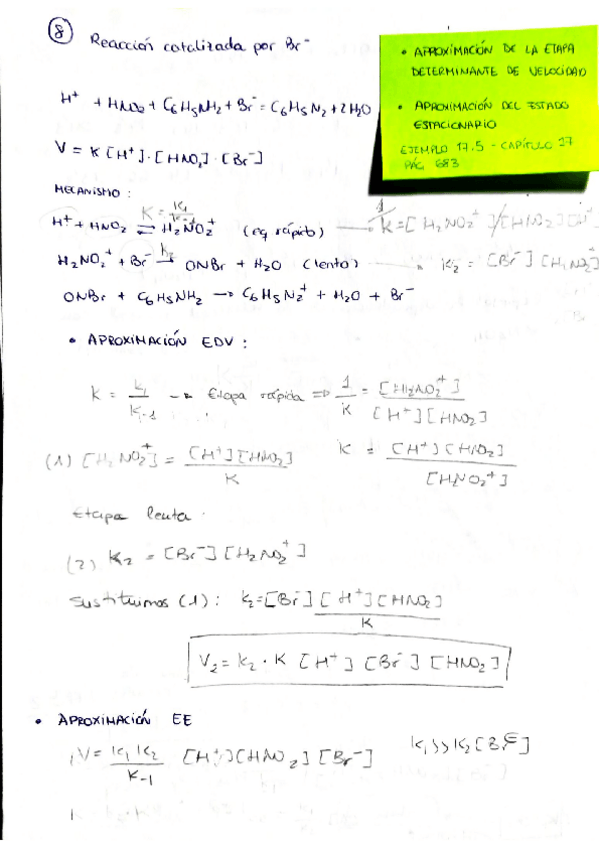 ⑧ Reacción catalizada por Br⁻
• APROXIMACIÓN DE LA ETAPA
DETERMINANTE DE VELOCIDAD
• APROXIMACIÓN DEL ESTADO
ESTACIONARIO
EJEMPLO 17.5 - CAPÍTULO 17
PÁG 683
H⁺ + HNO₂ + C₆H₅NH₂ + Br⁻ = C₆H₅N₂ + 2H₂O
V = K [H⁺]·[HNO₂]·[Br⁻]
MECANISMO:
K = K₁/K₋₁
H⁺ + HNO₂ ⇌ H₂NO₂⁺ (eq rápido)
H₂NO₂⁺ + Br⁻ → ONBr + H₂O (lenta) K₂ = [Br⁻][H₂NO₂⁺]
ONBr + C₆H₅NH₂ → C₆H₅N₂⁺ + H₂O + Br⁻
• APROXIMACIÓN EDV:
K = k₁/K₋₁ → Etapa rápida ⇒ 1/K = [H₂NO₂⁺]/[H⁺][HNO₂]
(1) [H₂NO₂⁺] = [H⁺][HNO₂]/K K = [H⁺][HNO₂]/[H₂NO₂⁺]
Etapa lenta.
(2) K₂ = [Br⁻][H₂NO₂⁺]
Sustituimos (1): K₂ = [Br⁻][H⁺][HNO₂]/K
V₂ = K₂ · K [H⁺][Br⁻][HNO₂]
• APROXIMACIÓN EE
V = K₁K₂/K₋₁ [H⁺][HNO₂][Br⁻] K₁>>K₂[Br⁻]